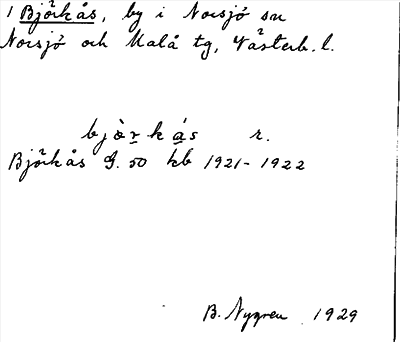 1 Björkås, by i Norsjö sn
Norsjö och Malå tg, Västerb. l.
bjò̀rkás r.
Björkås G. 50 kb 1921-1922
B. Nygren 1929